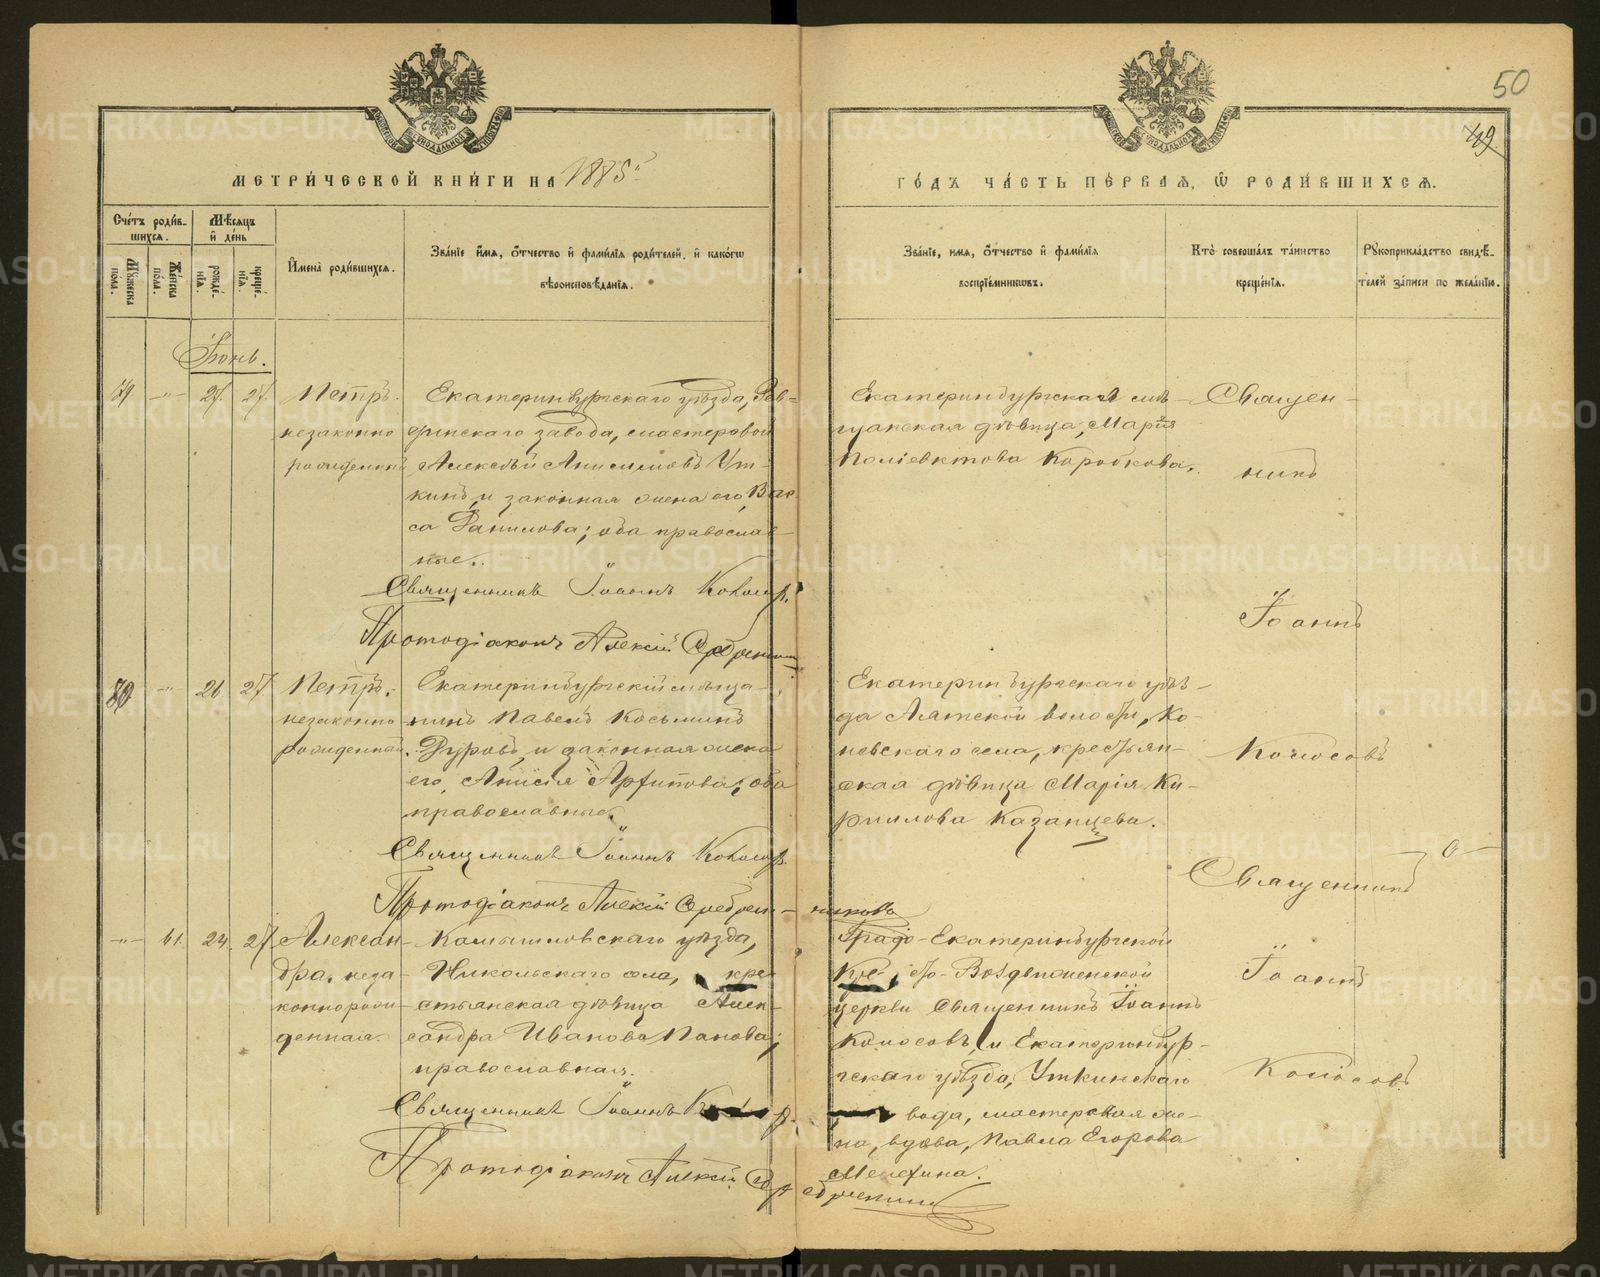 50
49.
МЕТРИ́ЧЕСКОЙ КНИ́ГИ НА 1885
ГО́ДЪ ЧА́СТЬ ПЕ́РВАЯ, Ѿ РОДИ́ВШИХСЯ.
Сче́тъ роди́вшихся.
Мѣсяцъ и де́нь
Му́жеска пола.
Же́нска пола.
рожде́нїя.
креще́нїя.
Имена̀ роди́вшихся.
Зва́нїе и́мя, о́тчество и фами́лїя роди́телей, и како́гѡ
вѣроисповѣ́данїя.
Зва́нїе, имя, о́тчество и фами́лїя
воспрїе́мникѡвъ.
Кто̀ соверша́лъ та́инство
креще́нїя.
Рꙋкоприкла́дство свидѣ́-
телей за́писи по жела́нїю.
Іюнь.
79 -"- 27. 27.
Петръ.
незаконно
рожденный
Екатеринбургскаго уѣзда, Рев-
динскаго завода, мастеровой
Алексѣй Анисимовъ Ут-
кинъ, и законная жена его, Вас-
са Данилова; оба православ-
ные.
Священникъ Іоаннъ Колосов
Протодіаконъ Алексій Серебренник
Екатеринбургская мѣ-
щанская дѣвица, Марія
Поліевктова Коробкова.
Священ-
никъ
Іоаннъ
80 -"- 26 27
Петръ.
незаконно
рожденный.
Екатеринбургскій мѣща-
нинъ Павелъ Косьминъ
Дуровъ, и законная жена
его, Анисія Архипова; оба
православные.
Священникъ Іоаннъ Колосов
Протодіаконъ Алексій Серебрен-никовъ
Екатеринбургскаго уѣз-
да Аятской волости, Ко-
невскаго села, крестьян-
ская дѣвица Марія Ки-
риллова Казанцева.
Колосовъ
Священникъ
-"- 61. 24. 27
Алексан-
дра, неза-
коннорож-
денная.
Камышловскаго уѣзда,
Никольскаго села, кре-
стьянская дѣвица Алек-
сандра Иванова Панова;
православная.
Священникъ Іоаннъ
Протодіаконъ Алексій Серебренник
Градо-Екатеринбургской
Кре сто-Воздвиженской
церкви священникъ Іоаннъ
Колосовъ, и Екатеринбур-
гскаго уѣзда, Уткинскаго
вода, мастерская же-
на, вдова, Павла Егорова
Мелехина.
Іоаннъ
Колосовъ
METRIKI.GASO-URAL.RU